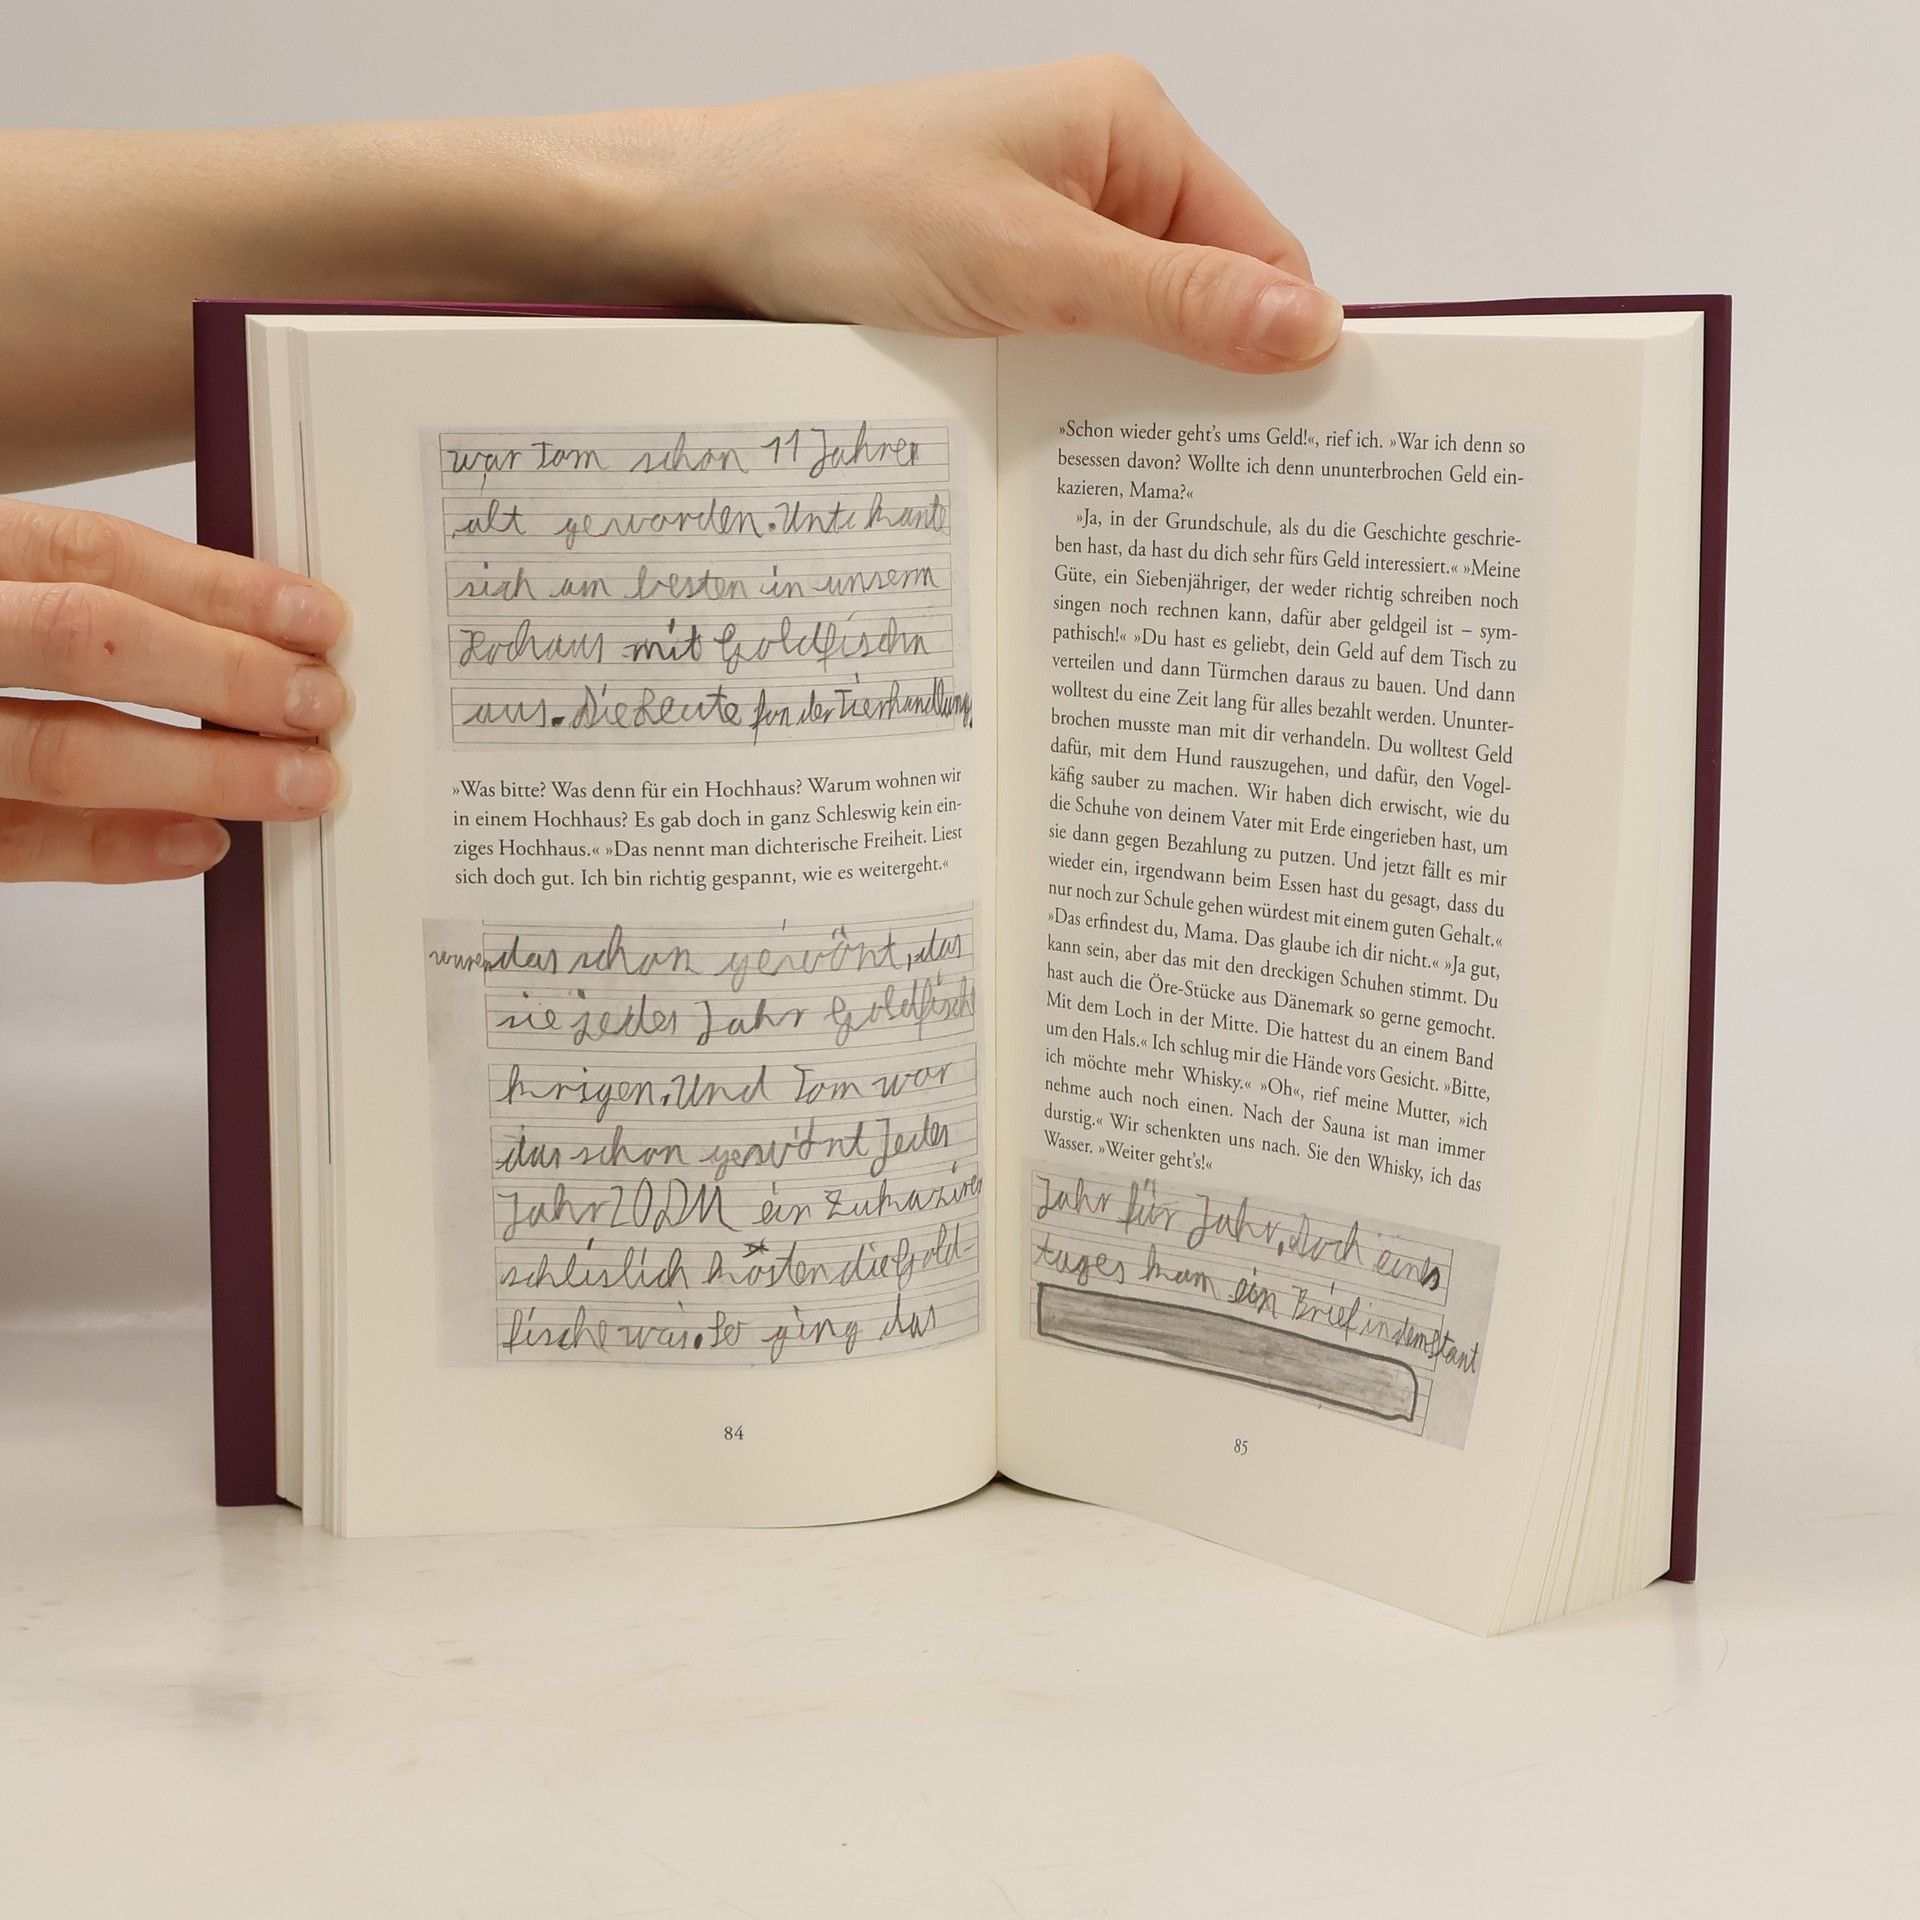 war Tom schon 11 Jahren
alt geworden. Unt kante
sich am besten in unserm
Hochaus mit Goldfischn
aus. Die Leute fon der Tierhandlung
»Was bitte? Was denn für ein Hochhaus? Warum wohnen wir
in einem Hochhaus? Es gab doch in ganz Schleswig kein ein-
ziges Hochhaus.« »Das nennt man dichterische Freiheit. Liest
sich doch gut. Ich bin richtig gespannt, wie es weitergeht.«
waren das schon gewönt, das
sie jedes Jahr Goldfisch
krigen. Und Tom war
das schon gewönt Jedes
Jahr 20DM ein Zukaziren
schlislich kosten die Gold-
fische was. So ging das
84
»Schon wieder geht’s ums Geld!«, rief ich. »War ich denn so
besessen davon? Wollte ich denn ununterbrochen Geld ein-
kazieren, Mama?«
»Ja, in der Grundschule, als du die Geschichte geschrie-
ben hast, da hast du dich sehr fürs Geld interessiert.« »Meine
Güte, ein Siebenjähriger, der weder richtig schreiben noch
singen noch rechnen kann, dafür aber geldgeil ist – sym-
pathisch!« »Du hast es geliebt, dein Geld auf dem Tisch zu
verteilen und dann Türmchen daraus zu bauen. Und dann
wolltest du eine Zeit lang für alles bezahlt werden. Ununter-
brochen musste man mit dir verhandeln. Du wolltest Geld
dafür, mit dem Hund rauszugehen, und dafür, den Vogel-
käfig sauber zu machen. Wir haben dich erwischt, wie du
die Schuhe von deinem Vater mit Erde eingerieben hast, um
sie dann gegen Bezahlung zu putzen. Und jetzt fällt es mir
wieder ein, irgendwann beim Essen hast du gesagt, dass du
nur noch zur Schule gehen würdest mit einem guten Gehalt.«
»Das erfindest du, Mama. Das glaube ich dir nicht.« »Ja gut,
kann sein, aber das mit den dreckigen Schuhen stimmt. Du
hast auch die Öre-Stücke aus Dänemark so gerne gemocht.
Mit dem Loch in der Mitte. Die hattest du an einem Band
um den Hals.« Ich schlug mir die Hände vors Gesicht. »Bitte,
ich möchte mehr Whisky.« »Oh«, rief meine Mutter, »ich
nehme auch noch einen. Nach der Sauna ist man immer
durstig.« Wir schenkten uns nach. Sie den Whisky, ich das
Wasser. »Weiter geht’s!«
Jahr für Jahr. Doch eines
tages kam ein Brief in dem stant
85